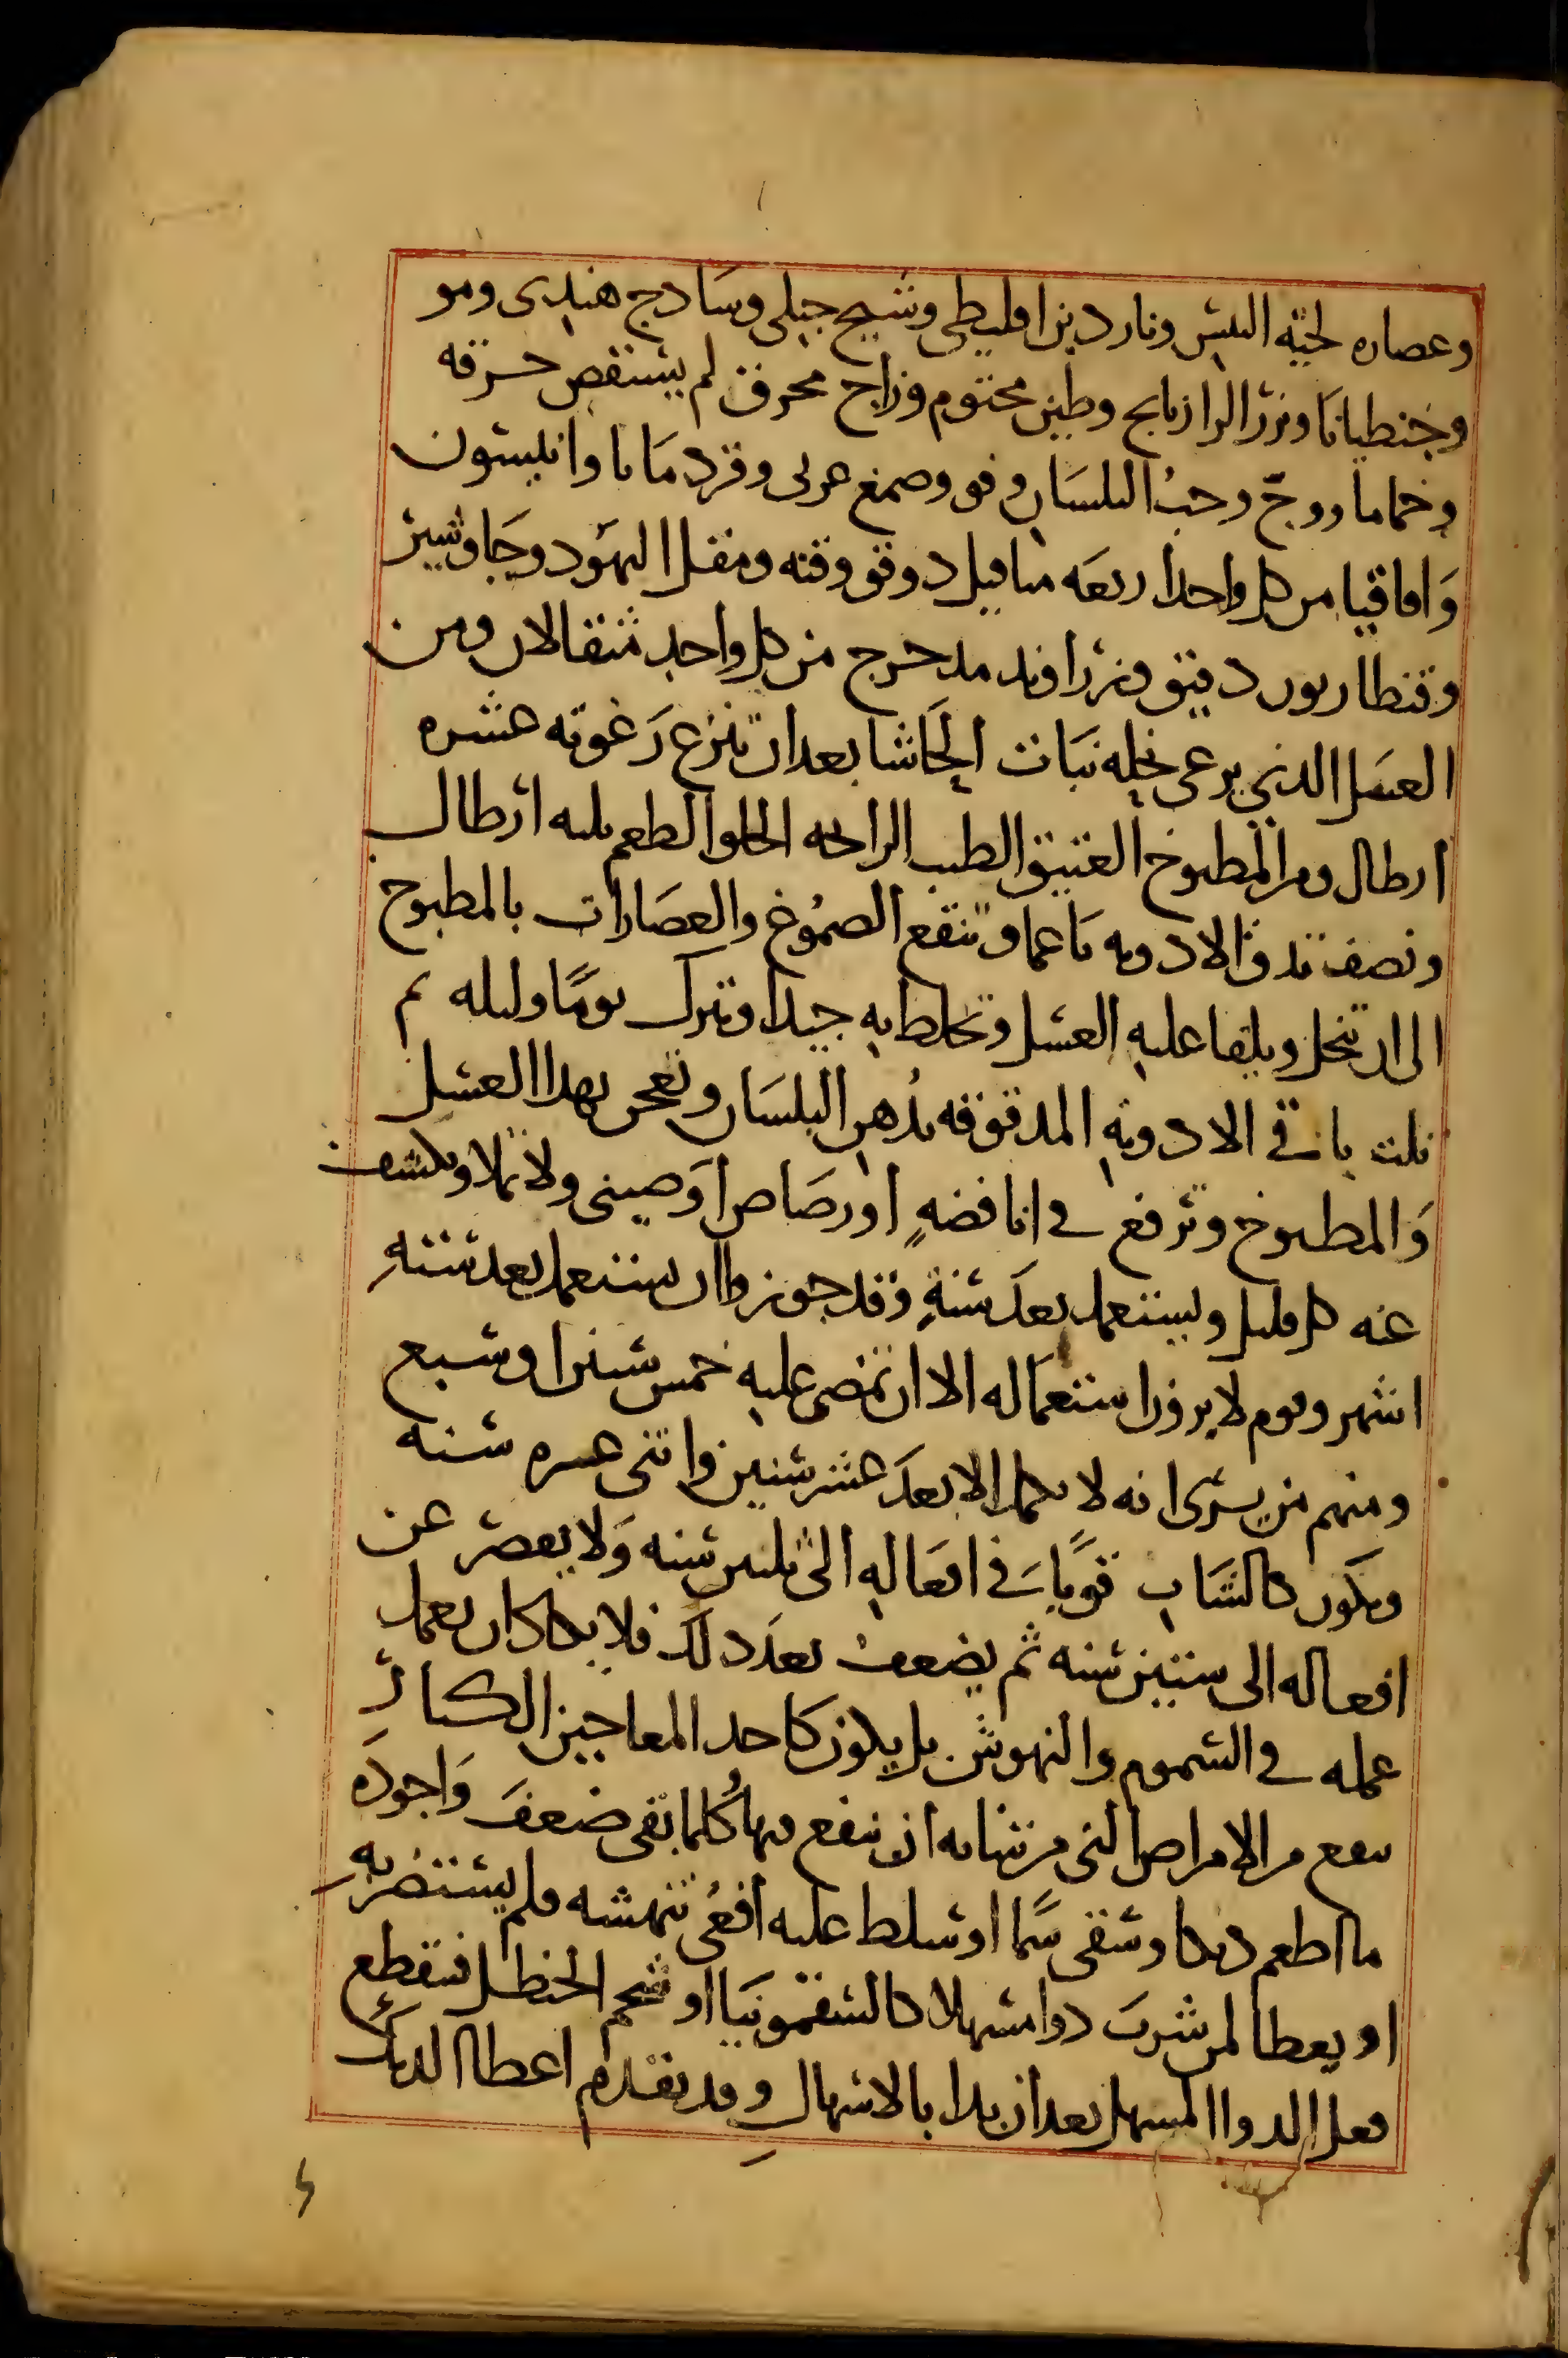 وعصاره لحيه التيس وناردين اقليطى وشيح جبلى وسادج هندى ومو
وجنطيانا وبزر الرازيانج وطين مختوم وزاج محرق لم يستقص حرقه
وحماما ووج وحب البلسان وفو وصمغ عربى وقردمانا وانيسون
واقاقيا من كل واحد اربعه مثاقيل دوقو وقنه ومقل اليهود وجاوشير
وقنطاريون دقيق وزراوند مدحرج من كل واحد مثقالان ومن
العسل الذي يرعى نحله نبات الحاشا بعد ان تنزع رغوته عشره
ارطال ومن المطبوخ العتيق الطيب الرائحه الحلو الطعم ثلثه ارطال
ونصف تدق الادويه ناعما وتنقع الصموغ والعصارات بالمطبوخ
الى ان تنحل ويلقا عليه العسل وتخلط به جيدا وتترك يوما وليله ثم
تلت باقي الادويه المدقوقه بدهن البلسان وتعجن بهدا العسل
والمطبوخ وترفع في انا فضه او رصاص او صينى ولا تملا وتكشف
عنه كل قليل ويستعمل بعد سنة وقد جوزوا ان يستعمل بعد سته
اشهر وقوم لا يرون استعماله الا ان تمضى عليه خمس سنين او سبع
ومنهم من يرى انه لا يكمل الا بعد عشر سنين واثنى عشره سنه
ويكون كالشاب قويا في افعاله الى ثلثين سنه ولا يقصر عن
افعاله الى ستين سنه ثم يضعف بعد دلك فلا يكاد ان يعمل
عمله في السموم والنهوش بل يكون كاحد المعاجين الكبار
ينفع من الامراض التى من شانه ان ينفع منها كلما بقى ضعف واجوده
ما اطعم ديكا وسقى سما او سلط عليه افعى تنهشه فلم يستضر به
او يعطا لمن شرب دوا مسهلا كالسقمونيا او شحم الحنظل فيقطع
فعل الدوا المسهل بعد ان بدا بالاسهال وقد تقدم اعطا الديك